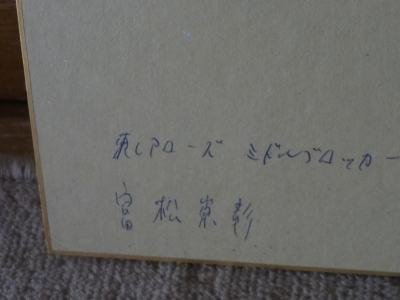 東レアローズ ミドルブロッカー
富松崇彰